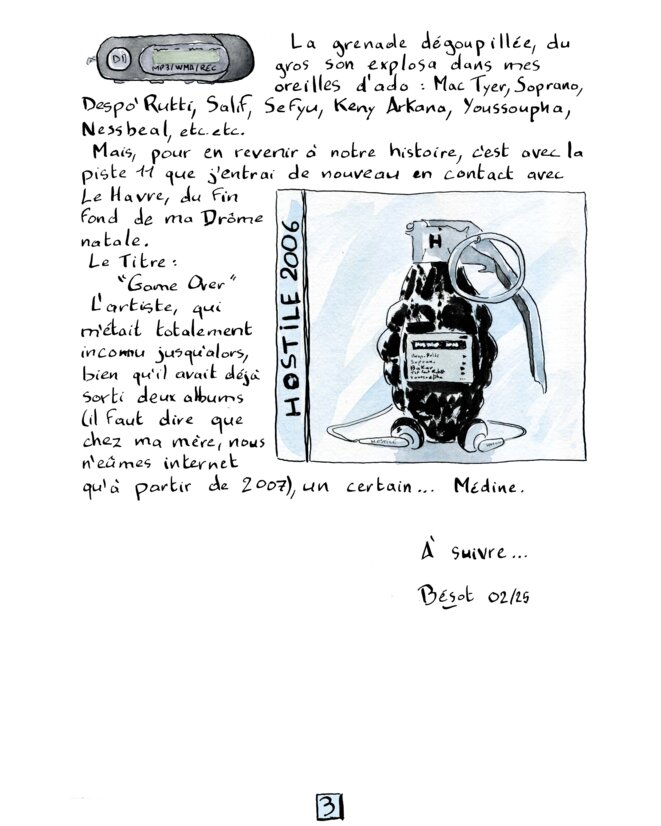 MP3/WMA/REC
La grenade dégoupillée, du
gros son explosa dans mes
oreilles d'ado : Mac Tyer, Soprano,
Despo' Rutti, Salif, Sefyu, Keny Arkana, Youssoupha,
Nessbeal, etc. etc.
Mais, pour en revenir à notre histoire, c'est avec la
piste 11 que j'entrai de nouveau en contact avec
Le Havre, du fin
fond de ma Drôme
natale.
Le Titre :
"Game Over"
L'artiste, qui
m'était totalement
inconnu jusqu'alors,
bien qu'il avait déjà
sorti deux albums
(il faut dire que
chez ma mère, nous
n'eûmes internet
qu'à partir de 2007), un certain... Médine.
HOSTILE 2006
H
Soprano
À suivre...
Bésot 02/25
3